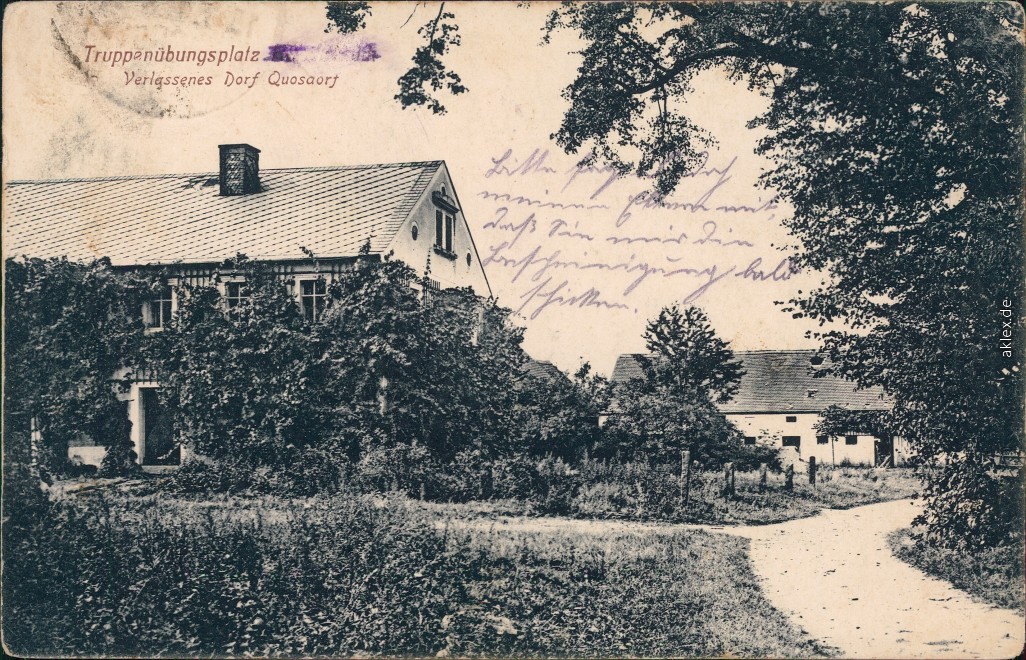 Truppenübungsplatz
Verlassenes Dorf Quosdorf
Bitte doch
meinen Eltern mit,
daß Sie mir die
Bescheinigung bald
schicken.
aklex.de